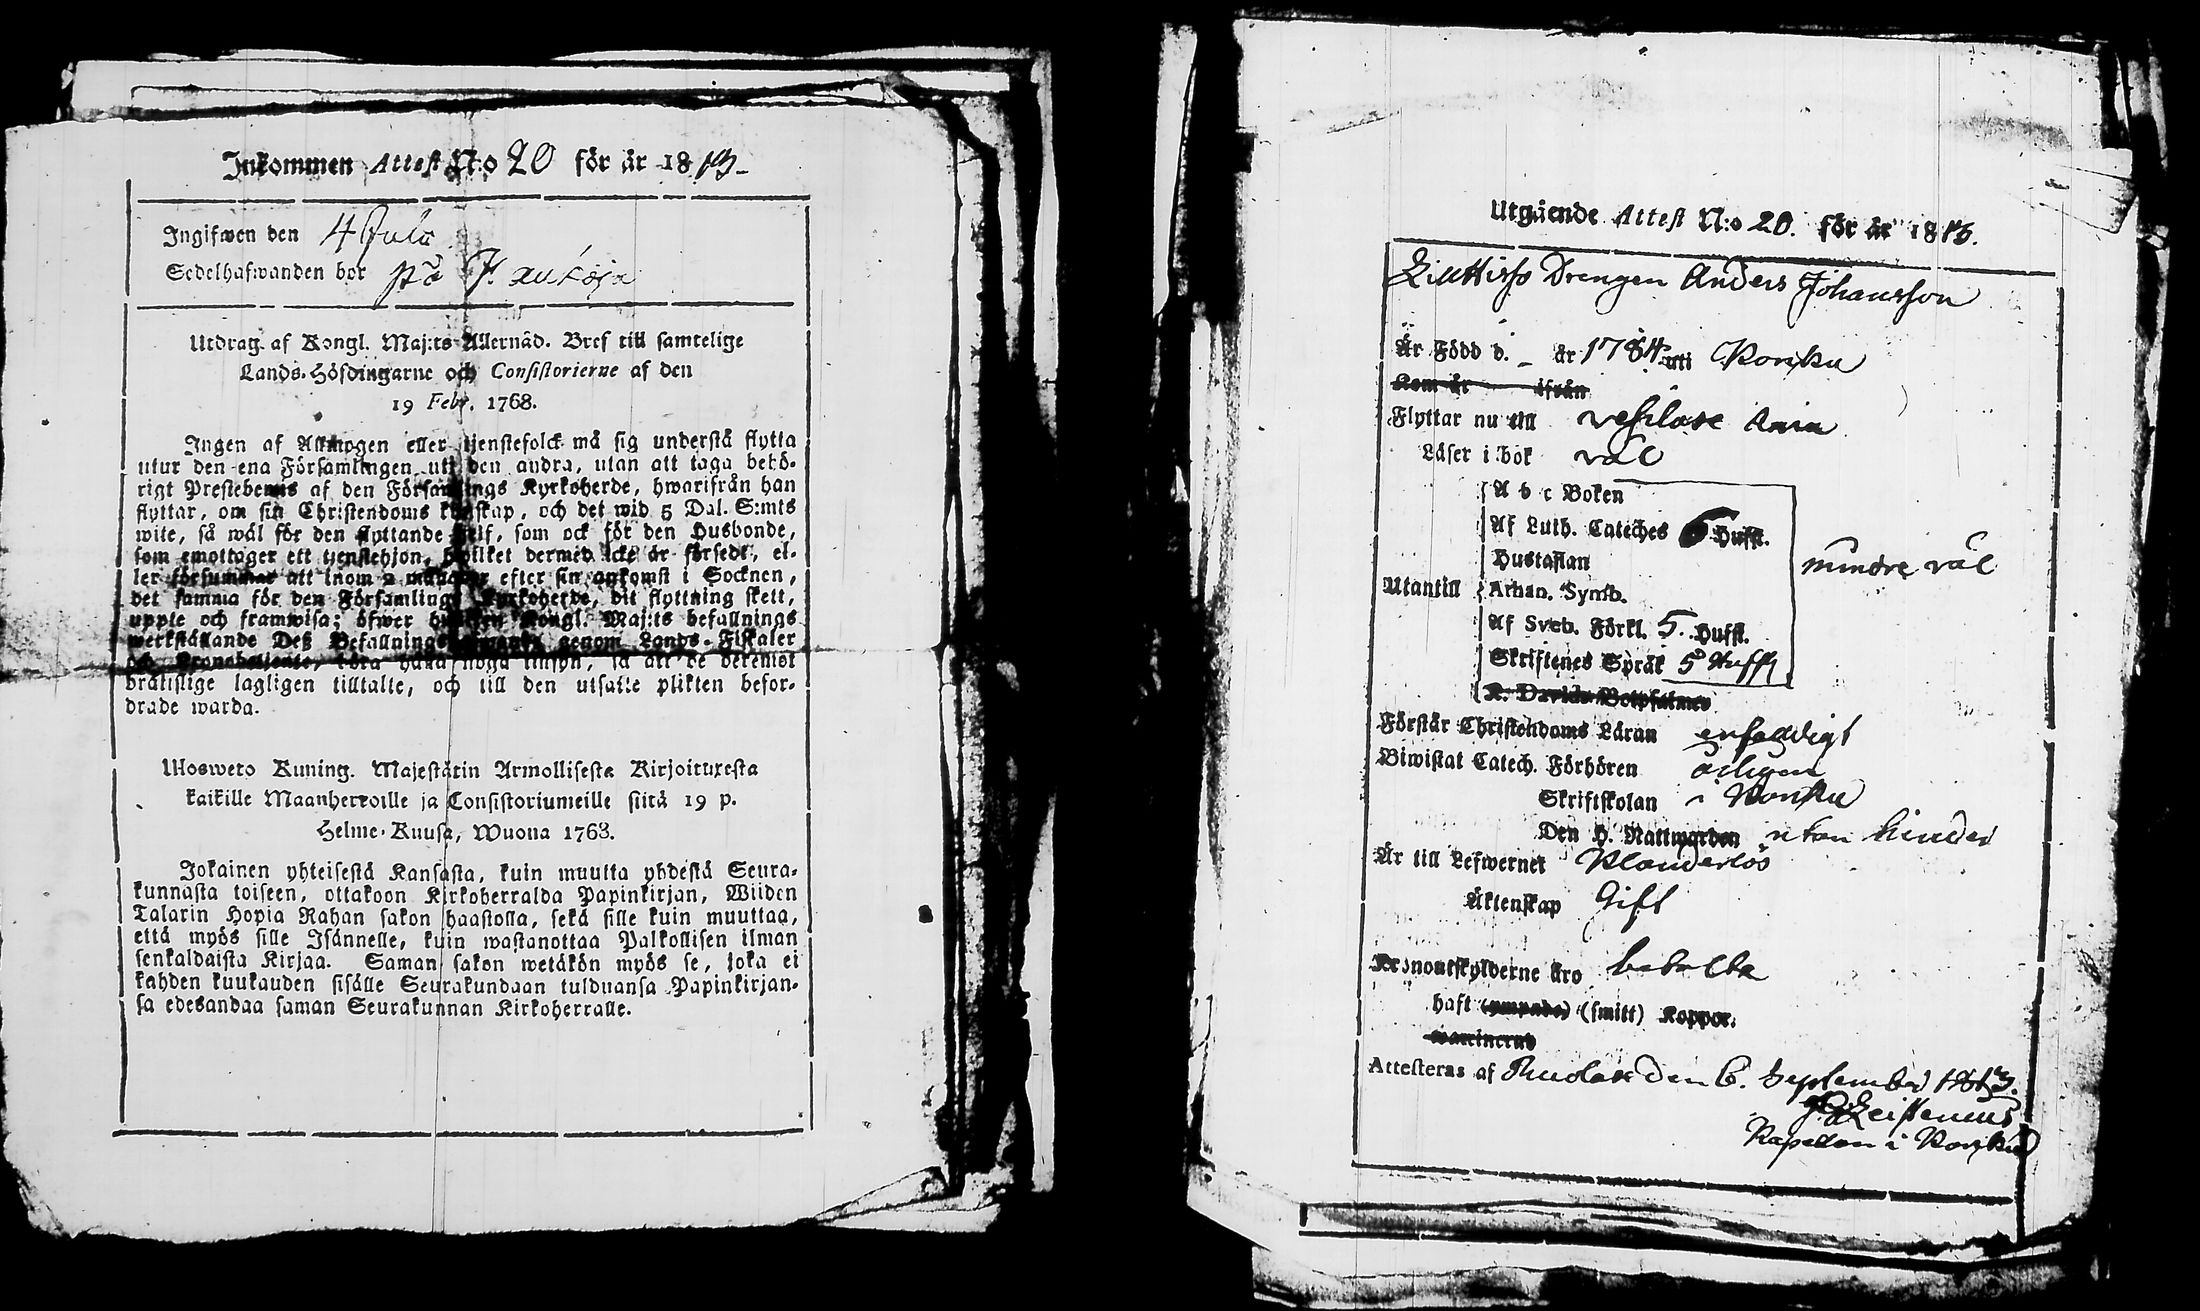 Inkommen Attest N:o 20 för år 1813.
Ingifwen den 4 Julii
Sedelhafwanden bor på
Utdrag af Kongl. Maj:ts Allernåd. Bref till samtelige
Lands-Höfdingarne och Consistorierne af den
19 Febr. 1768.
Ingen af Allmogen eller tjenstefolck må sig understå flytta
utur den ena Församlingen uti den andra, utan att taga behö-
rigt Prestebewis af den Församlings Kyrkoherde, hwarifrån han
flyttar, om sin Christendoms kunskap, och det wid 5 Dal. S:mts
wite, så wäl för den flyttande self, som ock för den Husbonde,
som emottager ett tjenstehjon, hwilket dermed icke är försedt, el-
ler försummar att inom 2 månader efter sin ankomst i Socknen,
det samma för den Församlings Kyrkoherde, dit flyttning skett,
uppte och framwisa; öfwer hwilken Kongl. Maj:ts befallnings
werkställande Deß Befallningshafwande genom Lands-Fiskaler
och Kronobetjente, böra hafwa noga tilsyn, så att de deremot
brätslige lagligen tilltalte, och till den utsatte plikten befor-
drade warda.
Ulosweto Kuning. Majestätin Armollisesta Kirjoituxesta
kaikille Maanherroille ja Consistoriumeille siitä 19 p.
Helme-Kuusa, Wuona 1768.
Jokainen yhteisestä Kansasta, kuin muutta yhdestä Seura-
kunnasta toiseen, ottakoon Kirkoherralda Papinkirjan, Wiiden
Talarin Hopia Rahan sakon haastolla, sekä sille kuin muuttaa,
että myös sille Isännelle, kuin wastanottaa Palkollisen ilman
senkaldaista Kirjaa. Saman sakon wetäkön myös se, joka ei
kahden kuukauden sisälle Seurakundaan tulduansa Papinkirjan-
sa edesandaa saman Seurakunnan Kirkoherralle.
Utgående Attest N:o 20. för år 1813.
Drengen Anders Johansson
Är Född d. _ år 1784 uti Konku
Kom år ifrån
Flyttar nu till
Läser i bok väl
A b c Boken
Af Luth. Cateches 6 Hufst.
Hustaflan
mindre väl
Utantill Athan. Symb.
Af Sveb. Förkl. 5. Hufst.
Skriftenes Språk 5 Hufst
K. Davids Botpsalmer
Förstår Christendoms Läran enfaldigt
Biwistat Catech. Förhören årligen
Skriftskolan i Konku
Den H. Nattwarden utan hinder
Är till Lefwernet Klanderlös
Äktenskap Gift
Kronoutskylderne äro betalta
Haft (ympade) (smitt) Koppor.
waccinerad
Attesteras af den 6. September 1813.
Kapellan i Konku